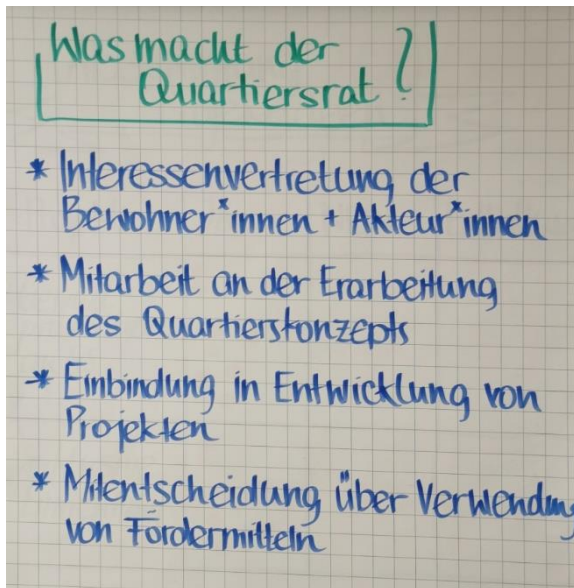 Was macht der
Quartiersrat ?
* Interessenvertretung der
Bewohner*innen + Akteur*innen
* Mitarbeit an der Erarbeitung
des Quartierskonzepts
* Einbindung in Entwicklung von
Projekten
* Mitentscheidung über Verwendung
von Fördermitteln